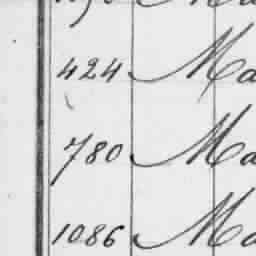 424 Ma
780 Ma
1086 Ma